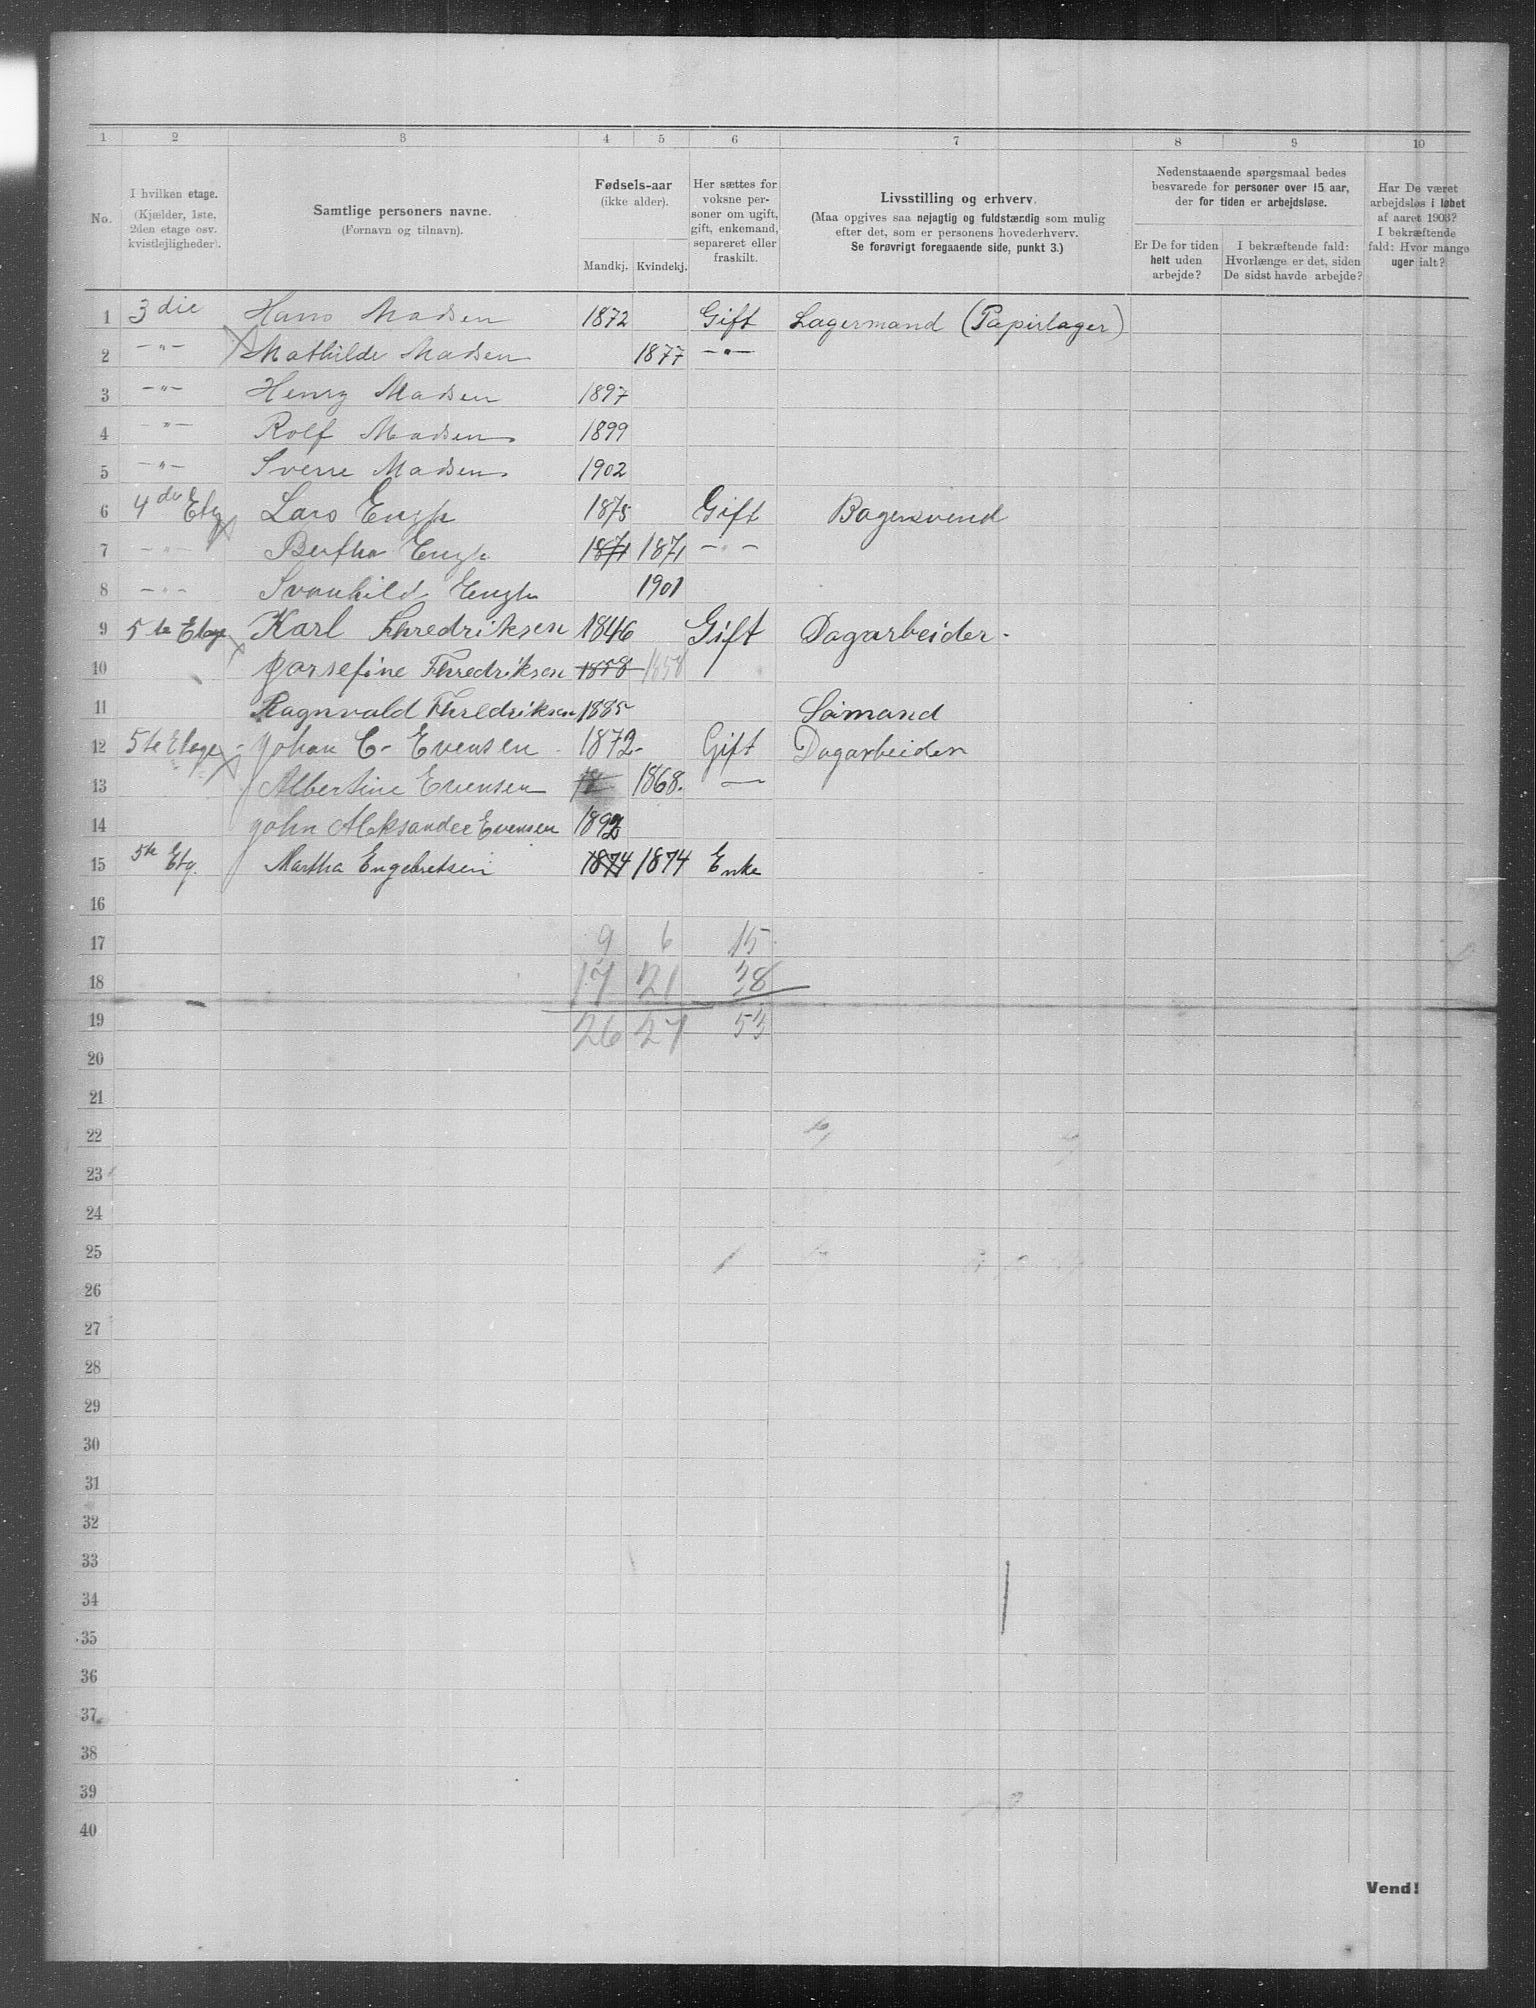 1 2 3 4 5 6 7 8 9 10
No.
I hvilken etage.
(Kjælder, 1ste,
2den etage osv.
kvistlejligheder).
Samtlige personers navne.
(Fornavn og tilnavn).
Fødsels-aar
(ikke alder).
Mandkj. Kvindekj.
Her sættes for
voksne per-
soner om ugift,
gift, enkemand,
separeret eller
fraskilt.
Livsstilling og erhverv.
(Maa opgives saa nøjagtig og fuldstændig som mulig
efter det, som er personens hovederhverv.
Se forøvrigt foregaaende side, punkt 3.)
Nedenstaaende spørgsmaal bedes
besvarede for personer over 15 aar,
der for tiden er arbejdsløse.
Er De for tiden
helt uden
arbejde?
I bekræftende fald:
Hvorlænge er det, siden
De sidst havde arbejde?
Har De været
arbejdsløs i løbet
af aaret 1903?
I bekræftende
fald: Hvor mange
uger ialt?
1 3 die Hans Madsen 1872 Gift Lagermand (Papirlager)
2 -"- Mathilde Madsen 1877 -"-
3 -"- Henry Madsen 1897
4 -"- Rolf Madsen 1899
5 -"- Sverre Madsen 1902
6 4 de Etg Lars Engh 1875 Gift Bagersvend
7 -"- Bertha Engh 1871 1871 -"-
8 -"- Svanhild Engh 1901
9 5 te Etage Karl Fhredriksen 1846 Gift Dagarbeider.
10 Jorsefine Fhredriksen 1858 1858
11 Ragnvald Fhredriksen 1885 Sømand
12 5te Etage - Johan C- Evensen 1872- Gift Dagarbeider
13 Albertine Evensen 18 1868. -
14 John Aleksander Evensen 1892
15 5te Etg. Martha Engebretsen 1874 1874 Enke
16
17 9 6 15
18 17 21 38
19 26 27 53
20
21
22
23
24
25
26
27
28
29
30
31
32
33
34
35
36
37
38
39
40
Vend!